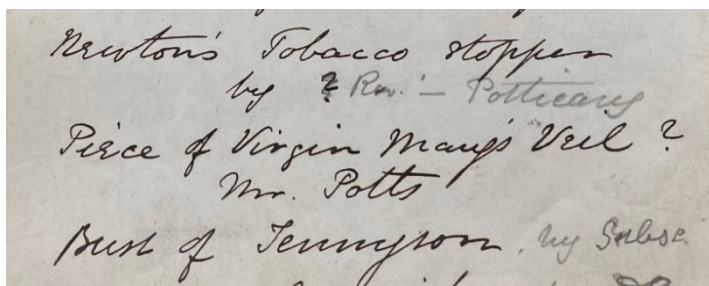 Newton's Tobacco stopper
by ? Rev. — Potticary
Piece of Virgin Mary's Veil ?
Mr. Potts
Bust of Tennyson. by Subsc.